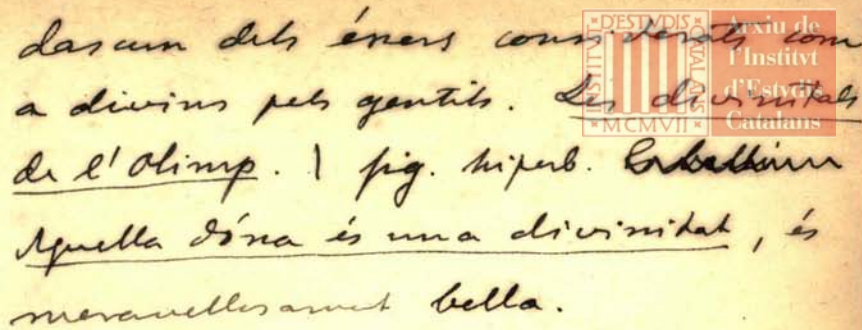 dascun dels éssers considerats com
a divins pels gentils. Les divinitats
de l'Olimp. | fig. hiperb.
Aquella dóna és una divinitat, és
meravellosament bella.
INSTITVT D'ESTVDIS CATALANS
MCMVII
Arxiu de
l'Institvt
d'Estvdis
Catalans